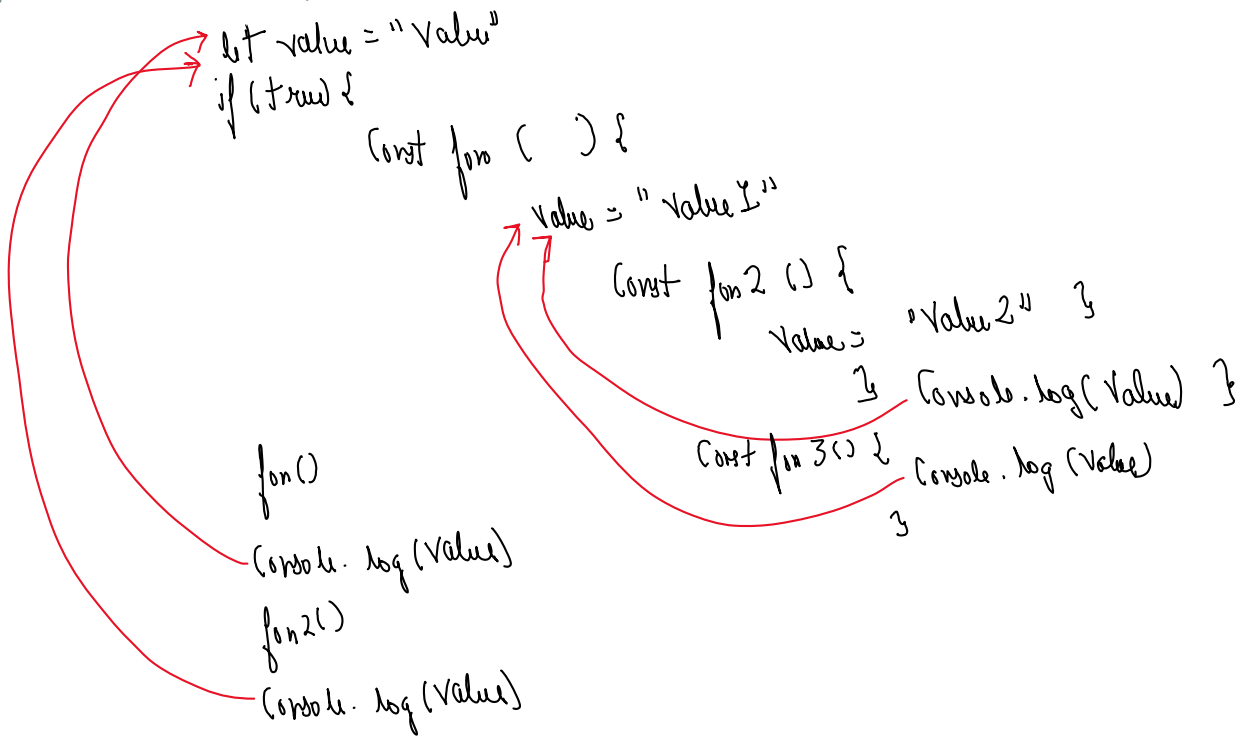 let value = "Value"
if (true) {
Const fon ( ) {
Value = "Value1"
Const fon2 () {
Value = "Value2" }
} Console.log(Value) }
Const fon3() {
Console.log(Value)
}
fon()
Console.log(Value)
fon2()
Console.log(Value)